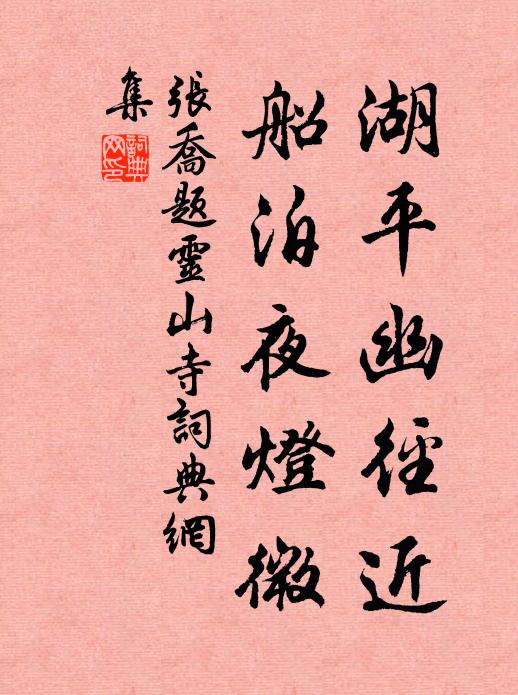 湖平幽徑近
船泊夜燈微
張喬題靈山寺詞典網
集
詞典
网印